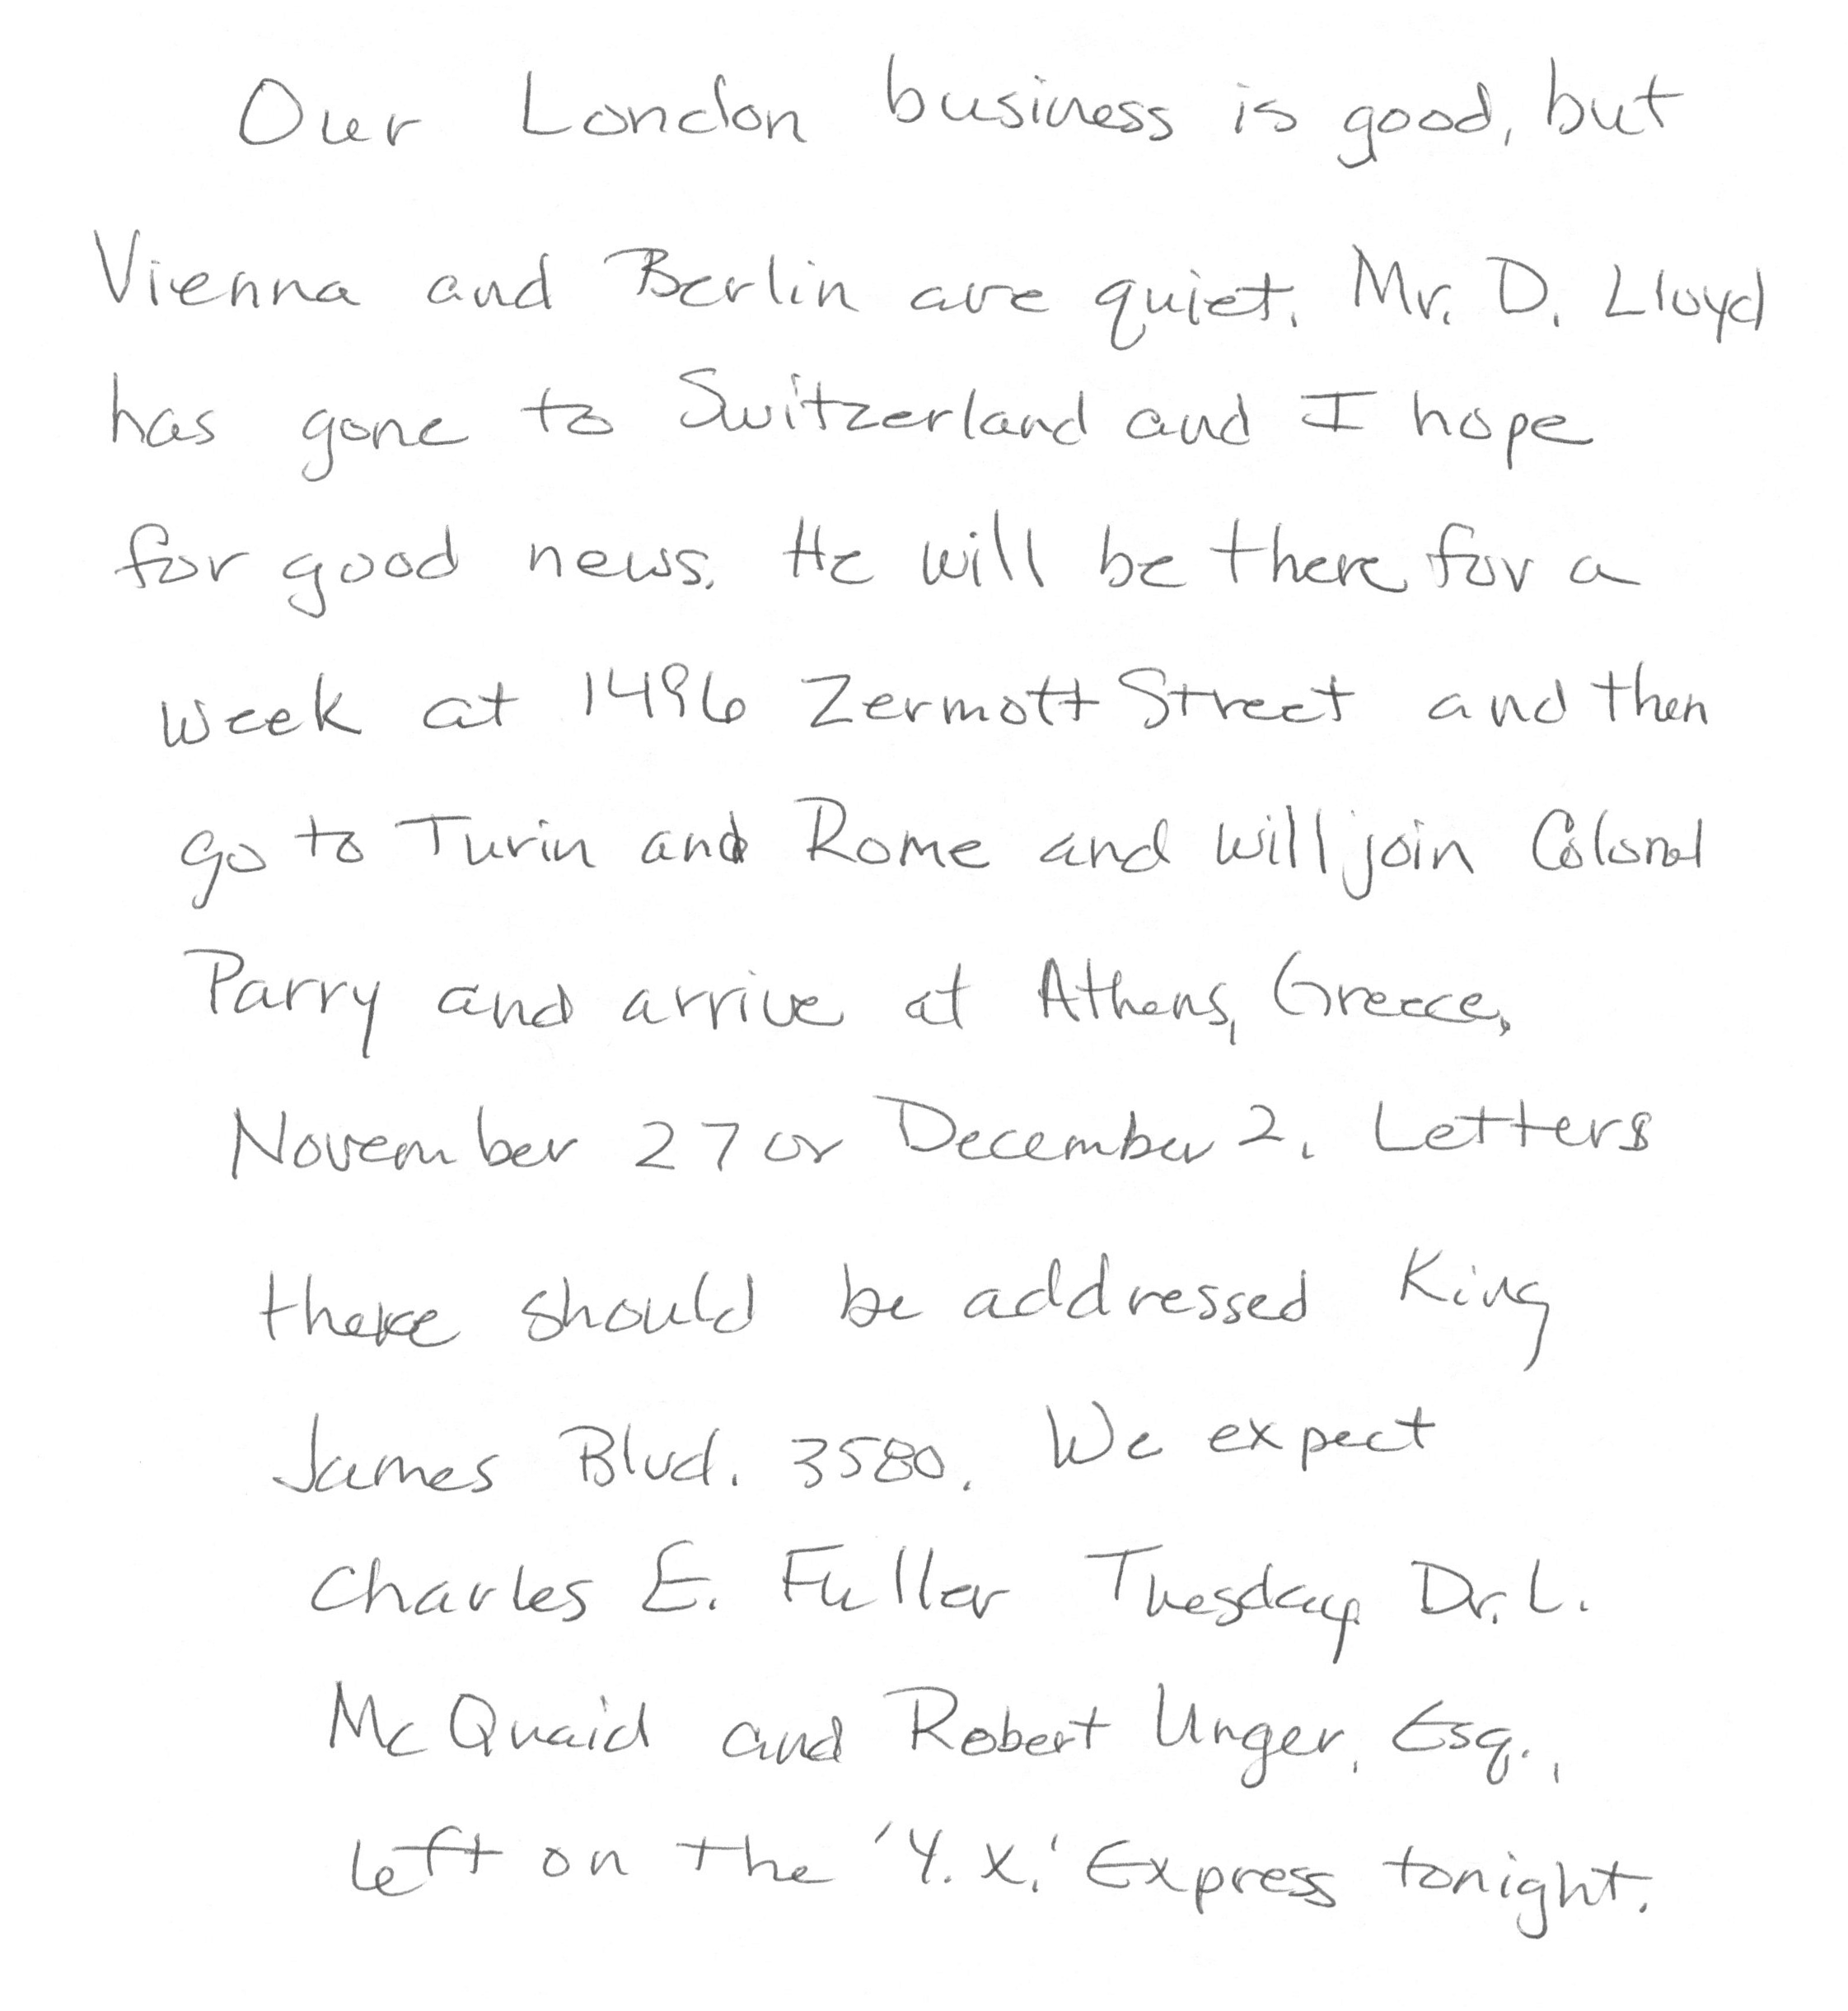 Our London business is good, but
Vienna and Berlin are quiet. Mr. D. Lloyd
has gone to Switzerland and I hope
for good news. He will be there for a
week at 1496 Zermott Street and then
go to Turin and Rome and will join Colonel
Parry and arrive at Athens, Greece,
November 27 or December 2. Letters
there should be addressed King
James Blvd. 3580. We expect
Charles E. Fuller Tuesday. Dr. L.
McQuaid and Robert Unger, Esq.,
left on the 'Y.X.' Express tonight.